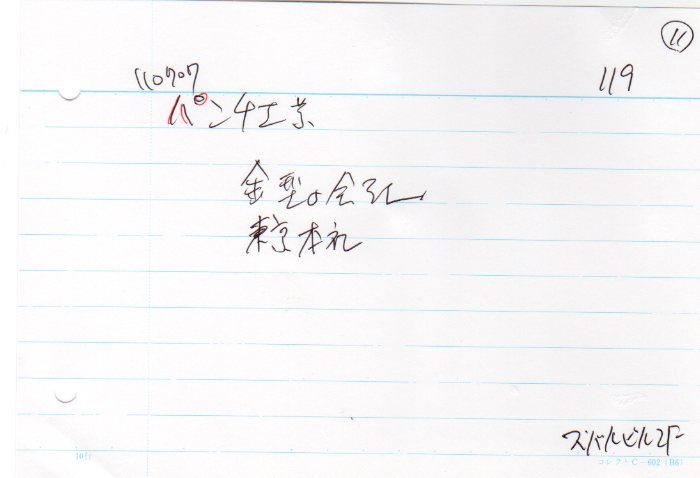 11
110707
119
パンチ工業
金型の会社
東京本社
スバルビル2F
10行
コレクト C-602 (B6)